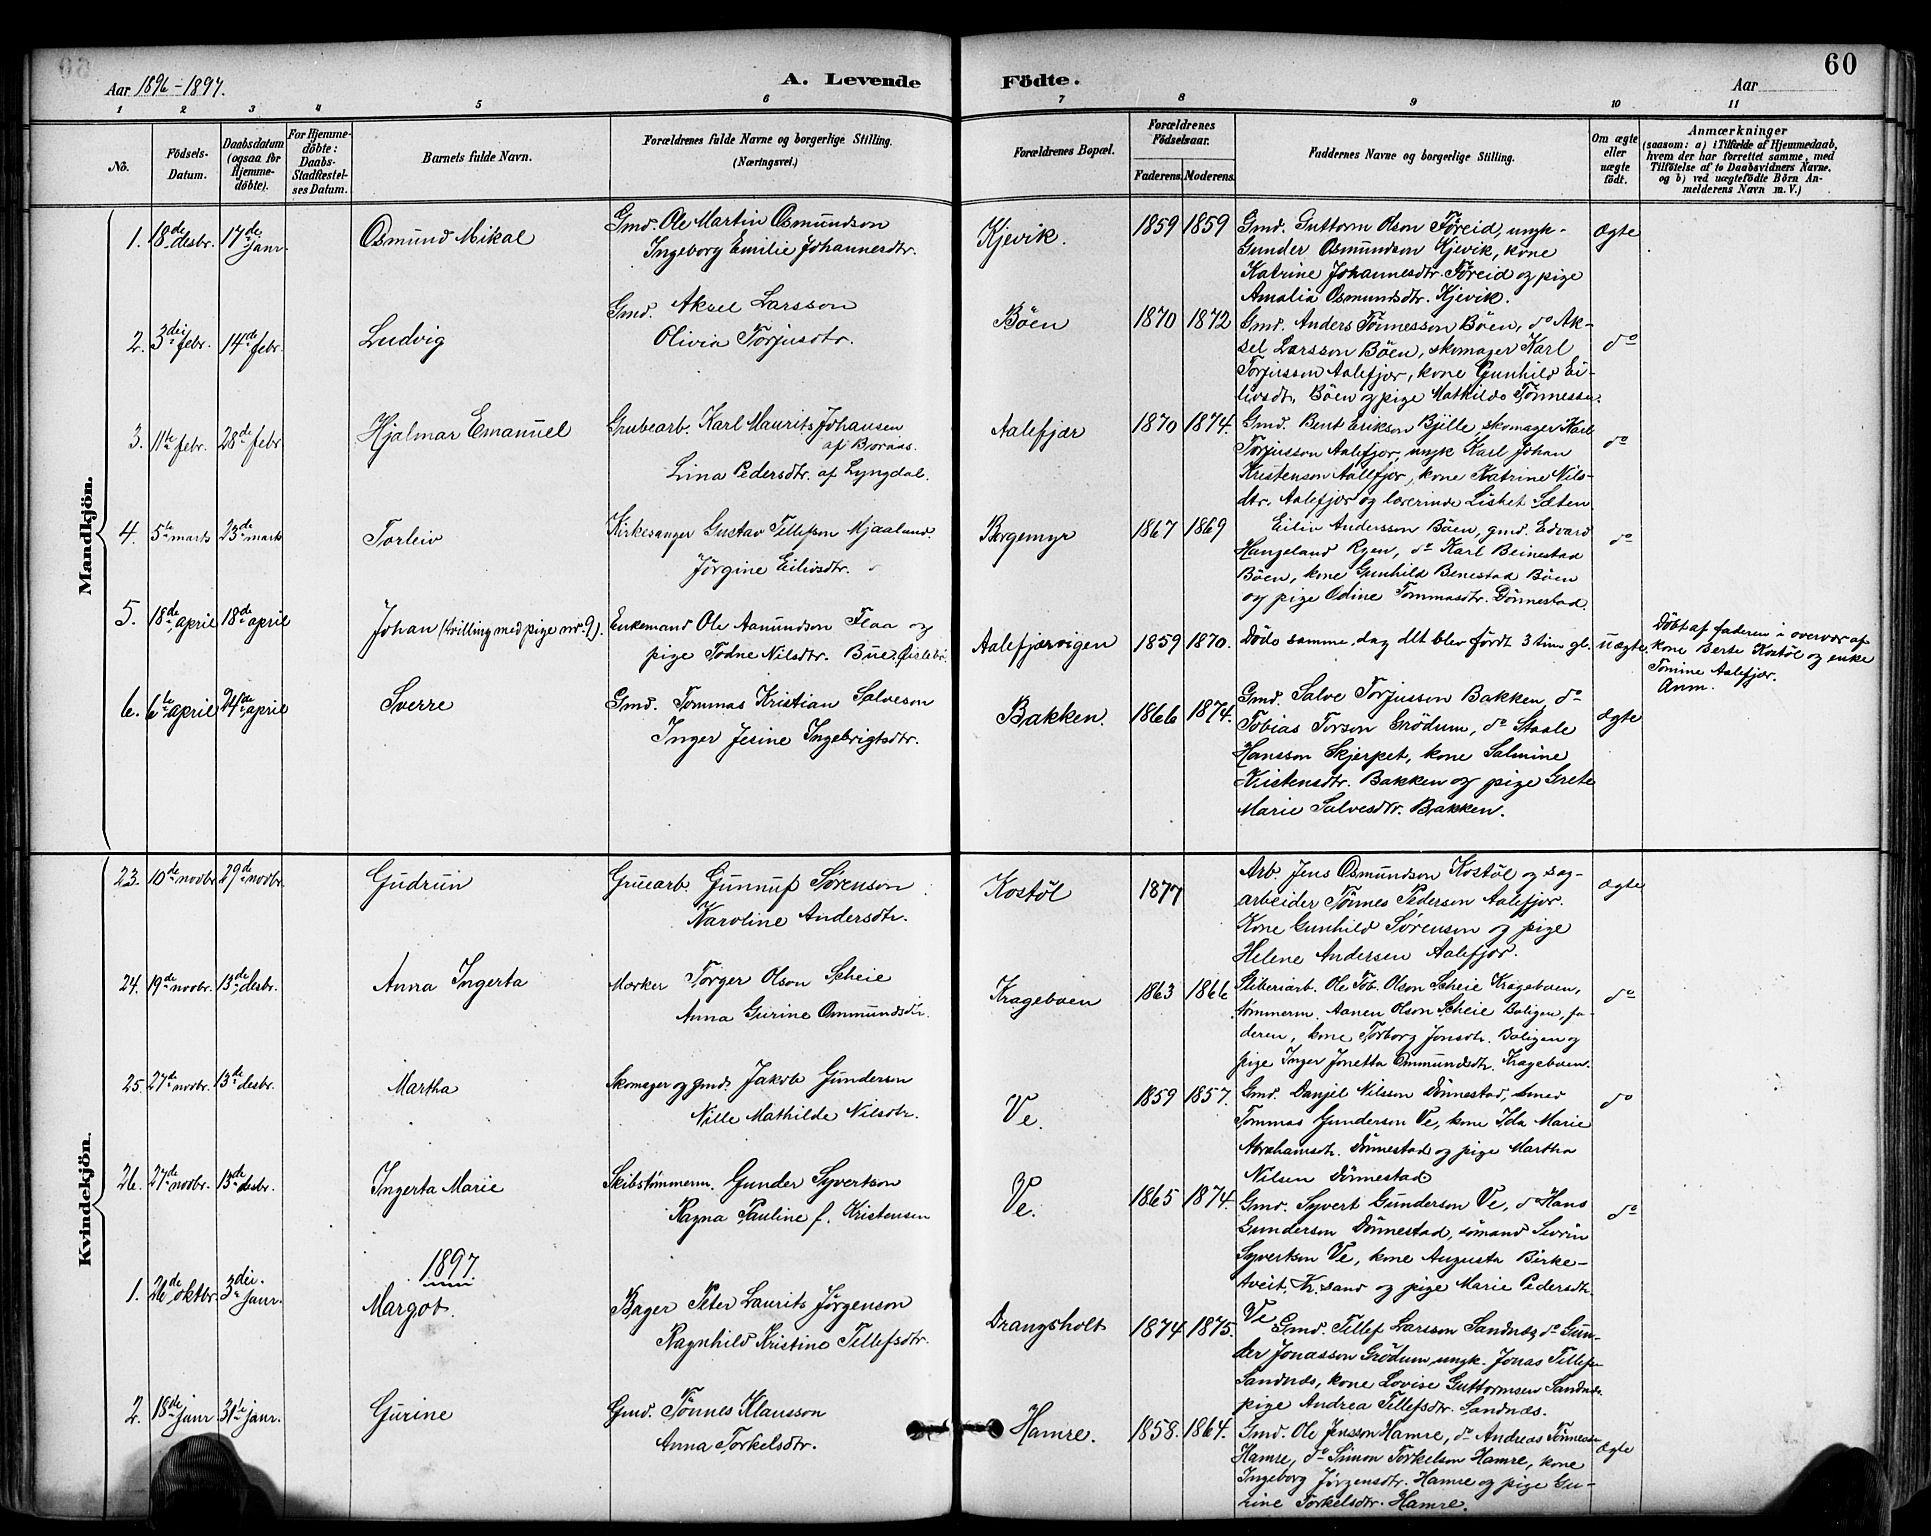 60
Aar 1896-1897.
A. Levende
Födte.
Aar
1 2 3 4 5 6 7 8 9 10 11
No.
Födsels-Datum.
Daabsdatum (ogsaa for Hjemme-döbte).
For Hjemme-döbte: Daabs-Stadfæstel-ses Datum.
Barnets fulde Navn.
Forældrenes fulde Navne og borgerlige Stilling. (Næringsvei.)
Forældrenes Bopæl.
Forældrenes Födselsaar.
Faderens. Moderens.
Faddernes Navne og borgerlige Stilling.
Om ægte eller uægte födt.
Anmærkninger
(saasom: a) i Tilfælde af Hjemmedaab,
hvem der har forrettet samme, med
Tilföielse af to Daabsvidners Navne.
og b) ved uægtefödte Börn An-
melderens Navn m. V.)
Mandkjön.
1. 18de desbr. 17de janr. Osmund Mikal
Gmd. Ole Martin Osmundson
Ingeborg Emilie Johannesdtr.
Kjevik. 1859 1859
Gmd. Guttorm Olson Føreid, ungk-
Gunder Osmundson Kjevik, kone
Katrine Johannesdtr. Føreid og pige
Amalia Osmundsdtr. Kjevik.
ægte
2. 3die febr. 14de febr. Ludvig
Gmd. Aksel Larsson
Olivia Torjusdtr.
Bøen 1870 1872
Gmd. Anders Tønnesson Bøen, do Ak-
sel Larsson Bøen, skomager Karl
Torjusson Aalefjær, kone Gunhild Ei-
livsdtr. Bøen og pige Mathilde Tønnessn.
do
3. 11te febr. 28de febr Hjalmar Emanuel
Grubearb. Karl Maurits Johansen
af Bjoraas.
Lina Pedersdtr. af Lyngdal.
Aalefjær 1870 1874.
Gmd. Bent Erikson Bjille, skomager Karl
Torjusson Aalefjor, ungk Karl Johan
Kristenson Aalefjor, kone Katrine Nils-
dtr. Aalefjor og lærerinde Lisbet Sæten
do
4. 5te marts 23de marts Torleiv
Kirkesanger Gustav Tellefson Mjaaland.
Jørgine Eilivsdtr.
Borgemyr 1867 1869
Eiliv Andersson Bøen, gmd. Edvard
Haugeland Ryen, do Karl Beinestad
Bøen, kone Gunhild Benestad Bøen
og pige Odine Tommasdtr. Dønnestad.
do
5. 18de april 18de april Johan (tvilling med pige nr. 9).
Enkemand Ole Aanundson Flaa og
pige Todne Nilsdtr. Bue,
Aalefjærvigen 1859 1870.
Døde samme dag det blev født 3 tim. gl.
uægte.
Døbt af faderen i overvær af
kone Berte Kostøl og enke
Tomine Aalefjær.
Anm.
6. 6te april 24de april Sverre
Gmd. Tommas Kristian Salveson
Inger Jesine Ingebrigtsdtr.
Bakken. 1866 1874.
Gmd. Salve Torjusson Bakken, do
Tobias Torson Grødum, do Staale
Hansson Skjerpet, kone Salmine
Kristensdtr. Bakken og pige Grete
Marie Salvesdtr. Bakken.
ægte
Kvindekjön.
23. 10de novbr. 29de novbr. Gudrun
Gruearb. Gunnuf Sørenson
Karoline Andersdtr.
Kostøl 1877
Arb. Jens Osmundson Kostøl og sag-
arbeider Tønnes Pederson Aalefjor.
Kone Gunhild Sørenson og pige
Helene Andersen Aalefjor.
ægte
24. 19de novbr. 13de desbr. Anna Ingerta
Mærker Torger Olson Scheie
Anna Gurine Ommundsdtr.
Krageboen 1863 1866
Sliberiarb. Ole Tob. Olson Scheie Krageboen,
tømmerm. Aanen Olson Scheie Boligen, fa-
deren, kone Torborg Jonsdtr. Boligen og
pige Inger Jonetta Ommundsdtr. Krageboen.
do
25. 27de novbr. 13de desbr. Martha
Skomager og gmd. Jakob Gunderson
Nille Mathilde Nilsdtr.
Ve. 1859 1857.
Gmd. Danjel Nilsson Dønnestad, smed
Tommas Gunderson Ve, kone Ida Marie
Abrahamsdtr. Dønnestad og pige Martha
Nilsen Dønnestad
do
26. 27de novbr. 13de desbr. Ingerta Marie
Skibstømmerm. Gunder Syvertson
Ragna Pauline f. Kristensen
Ve. 1865 1874.
Gmd. Syvert Gunderson Ve, do Hans
Gunderson Dønnestad, sømand Sevrin
Syvertson Ve, kone Augusta Birke-
tveit, Kr.sand og pige Marie Pedersdtr.
Ve
do
1897
1. 26de oktbr. 3die janr. Margot.
Bager Peter Laurits Jørgenson
Ragnhild Kristine Tellefsdtr.
Drangsholt 1874 1875.
Gmd. Tellef Larsson Sandnæs, do Gun-
der Jonasson Grødum, ungk. Jonas Tellefsn
Sandnæs, kone Lovise Guttormsen Sandnæs
pige Andrea Tellefsdtr. Sandnæs.
2. 18de janr 31te janr. Gurine
Gmd. Tønnes Klausson
Anna Torkelsdtr.
Hamre. 1858. 1864.
Gmd. Ole Jensson Hamre, do Andreas Tønnessn
Hamre, do Simon Torkelson Hamre, kone
Ingeborg Jørgensdtr. Hamre og pige Gu-
rine Torkelsdtr. Hamre.
ægte